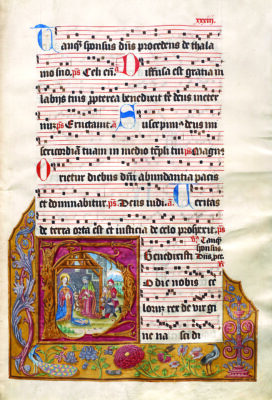 xxxiii.
Tanq̃ sponsus dñs procedens de thala
mo suo. ps Celi eñ. Diffusa est gratia in
labijs tuis ꝓpterea benedixit te deus in eter
nuʒ. ps Eructauit. Suscepimꝰ deus mi
sericordiam tuam in medio tẽpli tui ps Magnꝰ
Orietur diebus dñi abundantia pacis
et dominabitur. ps Deus iudi. Ueritas
de terra orta est et iusticia de celo prospexit. ps
Tanq̃
sponsus.
Benedixisti Dñs, p̃c.
Hodie nobis ce
lorum rex de virgi
ne nasci di